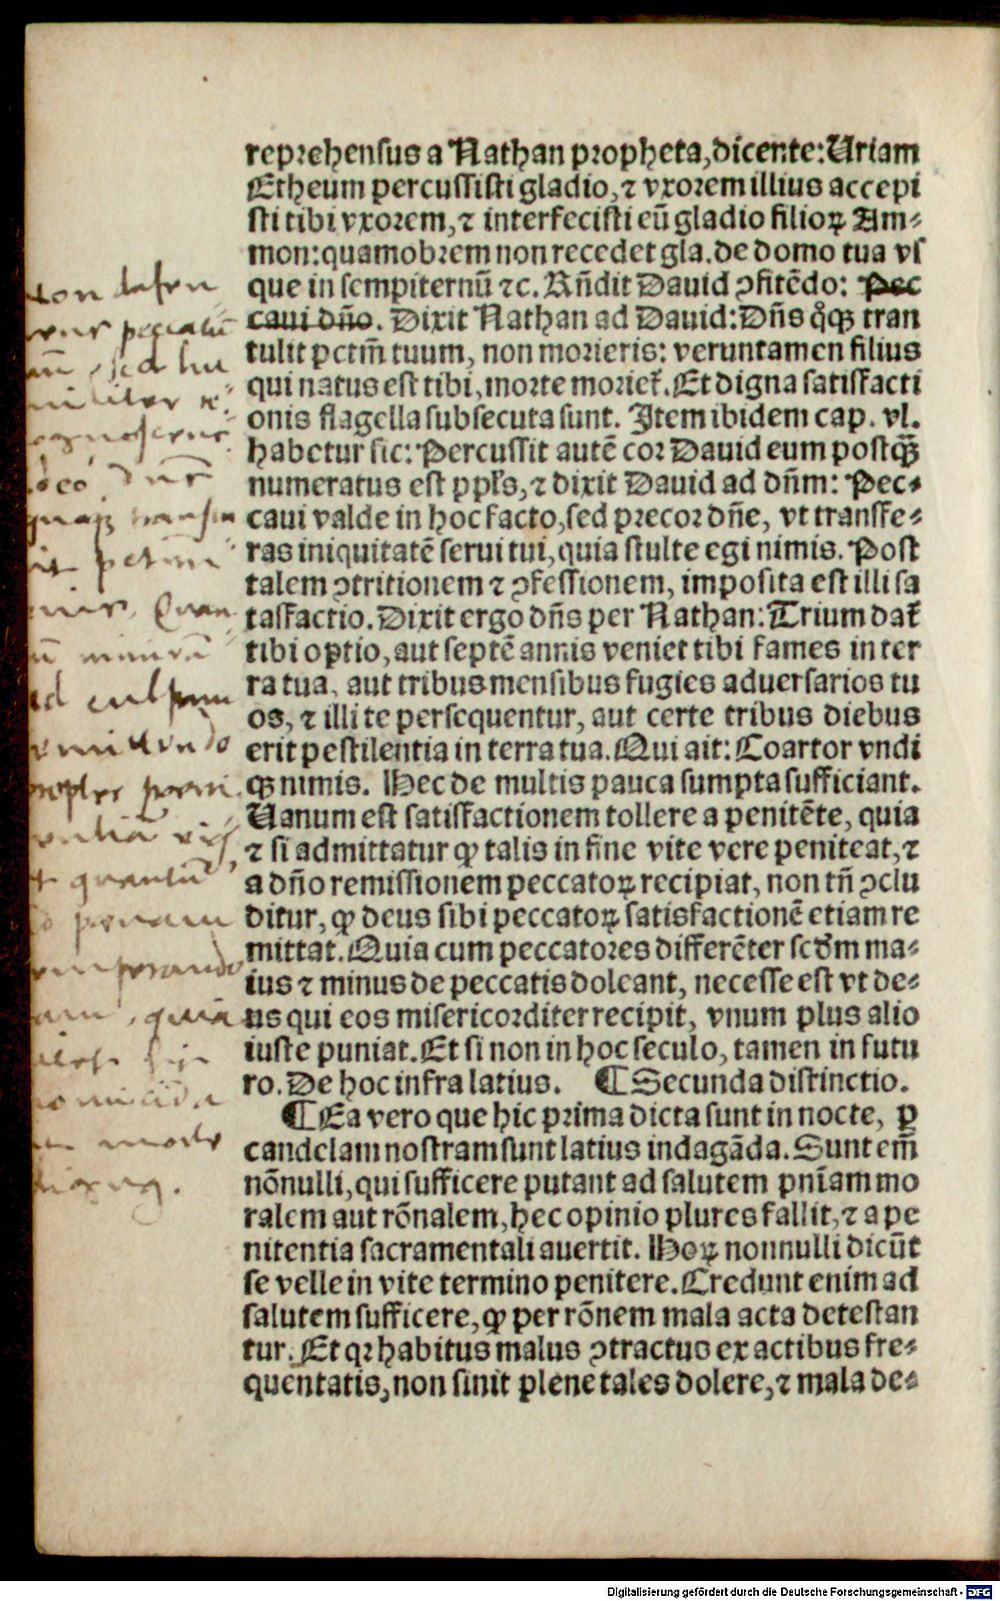 reprehensus a Nathan propheta, dicente: Uriam
Etheum percussisti gladio, ⁊ vxorem illius accepi
sti tibi vxorem, ⁊ interfecisti eū gladio filioꝝ Am⸗
mon: quamobrem non recedet gla. de domo tua vs
que in sempiternū ⁊c. Rñdit Dauid ↄfitēdo: Pec
caui dño. Dixit Nathan ad Dauid: Dñs qͦꝗꝫ tran
tulit pctm̄ tuum, non morieris: veruntamen filius
qui natus est tibi, morte morieť. Et digna satisfacti
onis flagella subsecuta sunt. Item ibidem cap. vl.
habetur sic: Percussit autē cor Dauid eum postqꝫ̄
numeratus est ppl's, ⁊ dixit Dauid ad dñm: Pec⸗
caui valde in hoc facto, sed precor dñe, vt transfe⸗
ras iniquitatē serui tui, quia stulte egi nimis. Post
talem ↄtritionem ⁊ ↄfessionem, imposita est illi sa
tasfactio. Dixit ergo dñs per Nathan: Trium dať
tibi optio, aut septē annis veniet tibi fames in ter
ra tua, aut tribus mensibus fugies aduersarios tu
os, ⁊ illi te persequentur, aut certe tribus diebus
erit pestilentia in terra tua. Qui ait: Coartor vndi
qꝫ nimis. Hec de multis pauca sumpta sufficiant.
Uanum est satisfactionem tollere a penitēte, quia
⁊ si admittatur ꝙ talis in fine vite vere peniteat, ⁊
a dño remissionem peccatoꝝ recipiat, non tñ ↄclu
ditur, ꝙ deus sibi peccatoꝝ satisfactionē etiam re
mittat. Quia cum peccatores differēter scdm ma⸗
ius ⁊ minus de peccatis doleant, necesse est vt de⸗
us qui eos misericorditer recipit, vnum plus alio
iuste puniat. Et si non in hoc seculo, tamen in futu
ro. De hoc infra latius. ¶ Secunda distinctio.
¶ Ea vero que hic prima dicta sunt in nocte, ꝑ
candelam nostram sunt latius indagāda. Sunt em̄
nōnulli, qui sufficere putant ad salutem pnīam mo
ralem aut rōnalem, hec opinio plures fallit, ⁊ a pe
nitentia sacramentali auertit. Hoꝝ nonnulli dicūt
se velle in vite termino penitere. Credunt enim ad
salutem sufficere, ꝙ per rōnem mala acta detestan
tur. Et qꝛ habitus malus ↄtractus ex actibus fre⸗
quentatis, non sinit plene tales dolere, ⁊ mala de⸗
peccatū
sed hu
dñs
pctm̄
ad culpam
quantū
quia
Digitalisierung gefördert durch die Deutsche Forschungsgemeinschaft - DFG